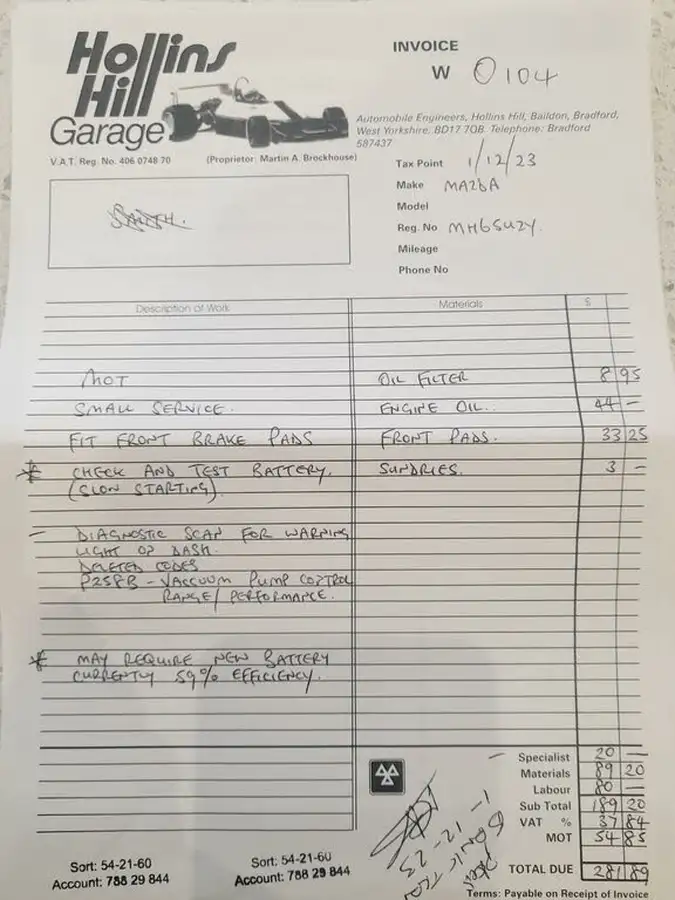 Hollins
Hill
Garage
INVOICE
W 0104
Automobile Engineers, Hollins Hill, Baildon, Bradford,
West Yorkshire, BD17 7QB. Telephone: Bradford
587437
V.A.T. Reg. No. 406 0748 70 (Proprietor: Martin A. Brockhouse)
Tax Point 1/12/23
Make MAZDA
Model
Reg. No
Mileage
Phone No
Description of Work Materials £
MOT OIL FILTER 8 95
SMALL SERVICE. ENGINE OIL.. 44 —
FIT FRONT BRAKE PADS FRONT PADS. 33 25
* CHECK AND TEST BATTERY. SUNDRIES. 3 —
(SLOW STARTING)
— DIAGNOSTIC SCAN FOR WARNING
LIGHT ON DASH.
DELETED CODES
P258B - VACCUUM PUMP CONTROL
RANGE/ PERFORMANCE.
* MAY REQUIRE NEW BATTERY
CURRENTLY 59% EFFICIENCY.
— Specialist 20 —
Materials 89 20
Labour 80 —
Sub Total 189 20
VAT % 37 84
MOT 54 85
TOTAL DUE 281 89
1-12-23
Sort: 54-21-60 Sort: 54-21-60
Account: 788 29 844 Account: 788 29 844
Terms: Payable on Receipt of Invoice